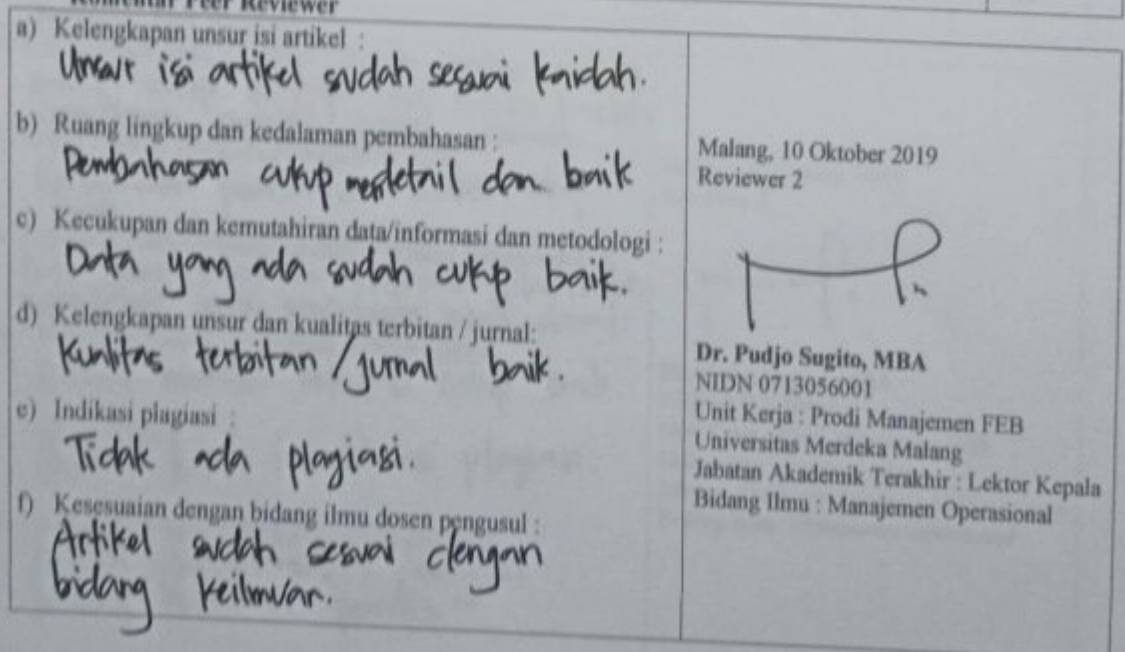 Komentar Peer Reviewer
a) Kelengkapan unsur isi artikel :
Unsur isi artikel sudah sesuai kaidah.
b) Ruang lingkup dan kedalaman pembahasan :
Pembahasan cukup mendetail dan baik
c) Kecukupan dan kemutahiran data/informasi dan metodologi :
Data yang ada sudah cukup baik.
d) Kelengkapan unsur dan kualitas terbitan / jurnal:
Kualitas terbitan / jurnal baik.
e) Indikasi plagiasi :
Tidak ada plagiasi.
f) Kesesuaian dengan bidang ilmu dosen pengusul :
Artikel sudah sesuai dengan
bidang keilmuan.
Malang, 10 Oktober 2019
Reviewer 2
Dr. Pudjo Sugito, MBA
NIDN 0713056001
Unit Kerja : Prodi Manajemen FEB
Universitas Merdeka Malang
Jabatan Akademik Terakhir : Lektor Kepala
Bidang Ilmu : Manajemen Operasional